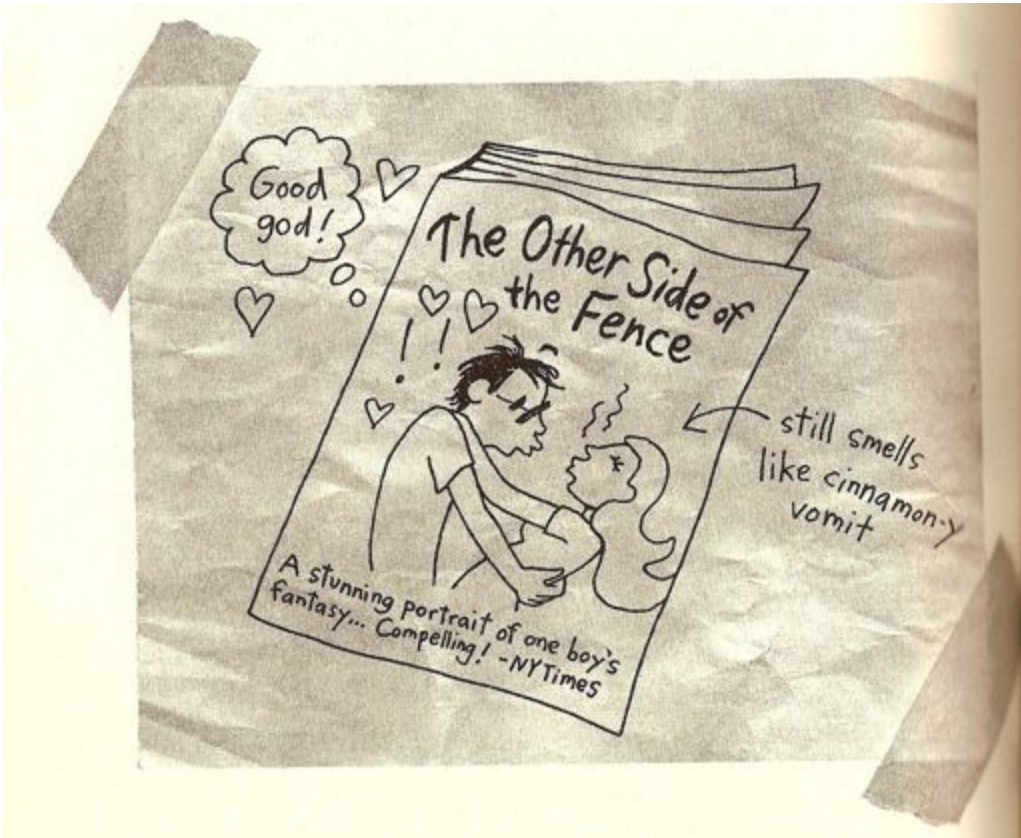 Good
god!
The Other Side of
the Fence
! !
still smells
like cinnamon-y
vomit
A stunning portrait of one boy's
fantasy... Compelling! -NYTimes